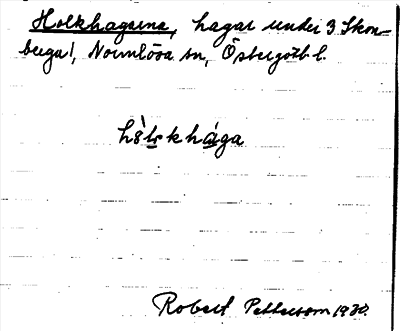 Holkhagarna, hagar under 3 Skon-
berga!, Normlösa sn, Östergötl l.
hòlkhága
Robert Pettersson 1930.